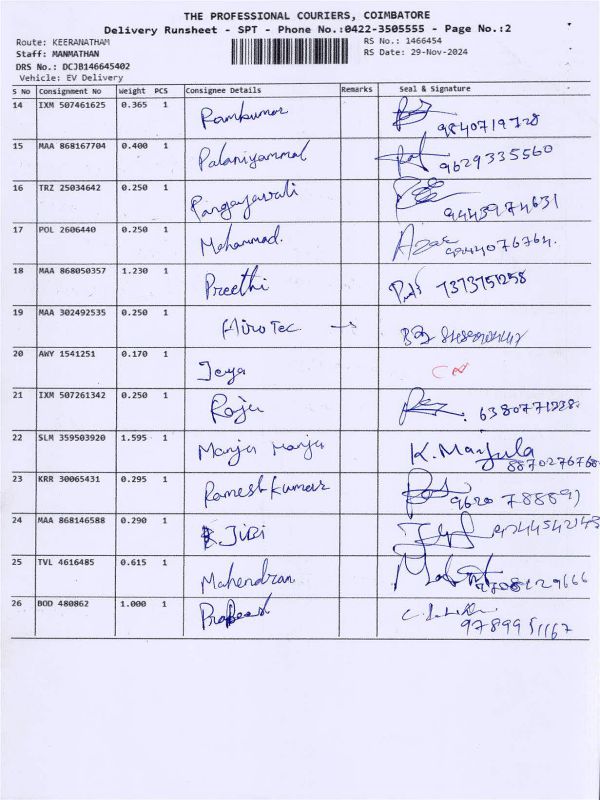 THE PROFESSIONAL COURIERS, COIMBATORE
Delivery Runsheet - SPT - Phone No.:0422-3505555 - Page No.:2
Route: KEERANATHAM RS No.: 1466454
Staff: MANMATHAN RS Date: 29-Nov-2024
DRS No.: DCJB146645402
Vehicle: EV Delivery
S No Consignment No Weight PCS Consignee Details Remarks Seal & Signature
14 IXM 507461625 0.365 1 Ramkumar 9840719728
15 MAA 868167704 0.400 1 Palaniyammal 9629335560
16 TRZ 25034642 0.250 1 Pangajavali 9443974631
17 POL 2606440 0.250 1 Mohammad.
18 MAA 868050357 1.230 1 Preethi 7373751258
19 MAA 302492535 0.250 1 Hiro Tec.
20 AWY 1541251 0.170 1 Jeya
21 IXM 507261342 0.250 1 Raju
22 SLM 359503920 1.595 1 Manju Manju K. Manjula 8870276768
23 KRR 30065431 0.295 1 Ramesh Kumar
24 MAA 868146588 0.290 1 Jibi
25 TVL 4616485 0.615 1 Mahendran
26 BOD 480862 1.000 1 9789951167